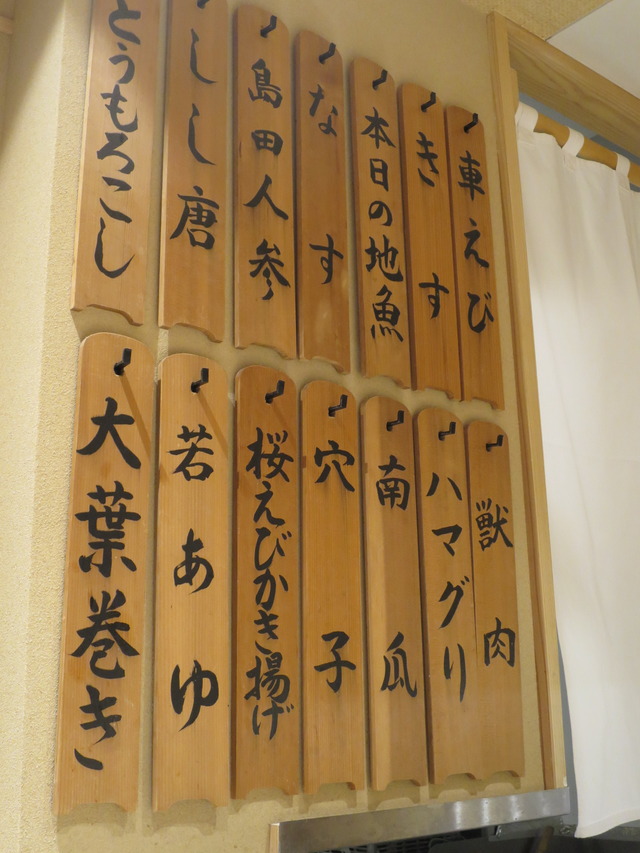 車えび
きす
本日の地魚
なす
島田人参
しし唐
とうもろこし
獣肉
ハマグリ
南瓜
穴子
桜えびかき揚げ
若あゆ
大葉巻き